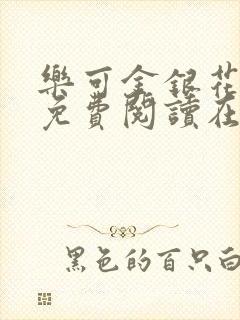 樂可金銀花
免費閱讀在
黑色的百只白